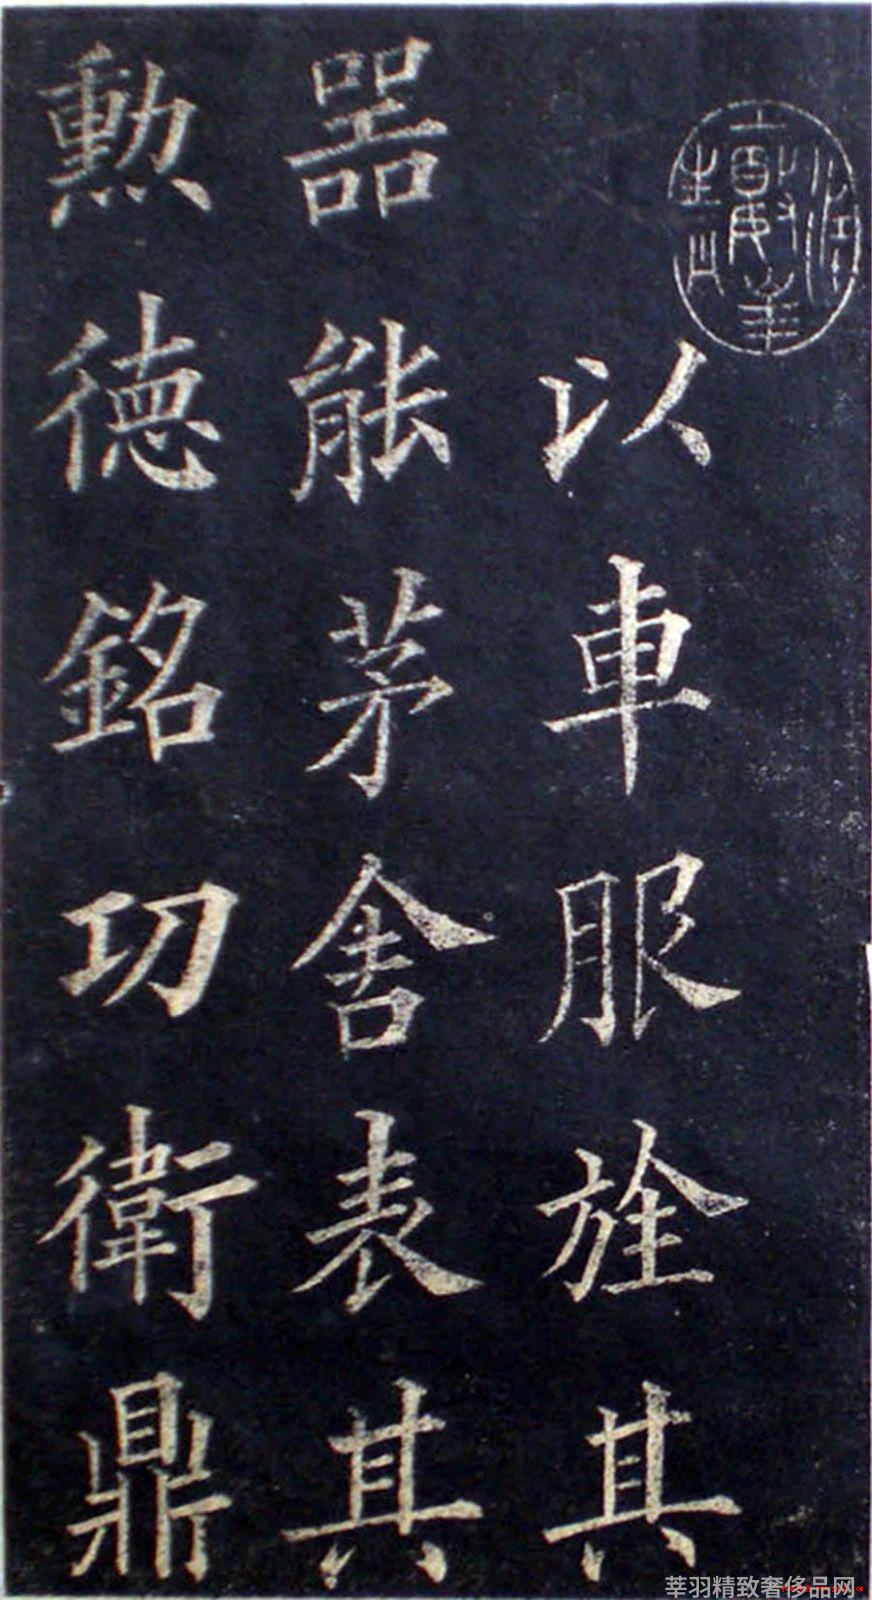 以車服旌其
器能茅舍表其
勲德銘功衛鼎
莘羽精致奢侈品网